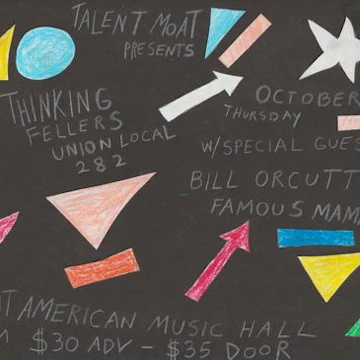 TALENT MOAT
PRESENTS
THINKING
FELLERS
UNION LOCAL
282
OCTOBER
THURSDAY
W/SPECIAL GUES
BILL ORCUTT
FAMOUS MAM
AT AMERICAN MUSIC HALL
M $30 ADV - $35 DOOR